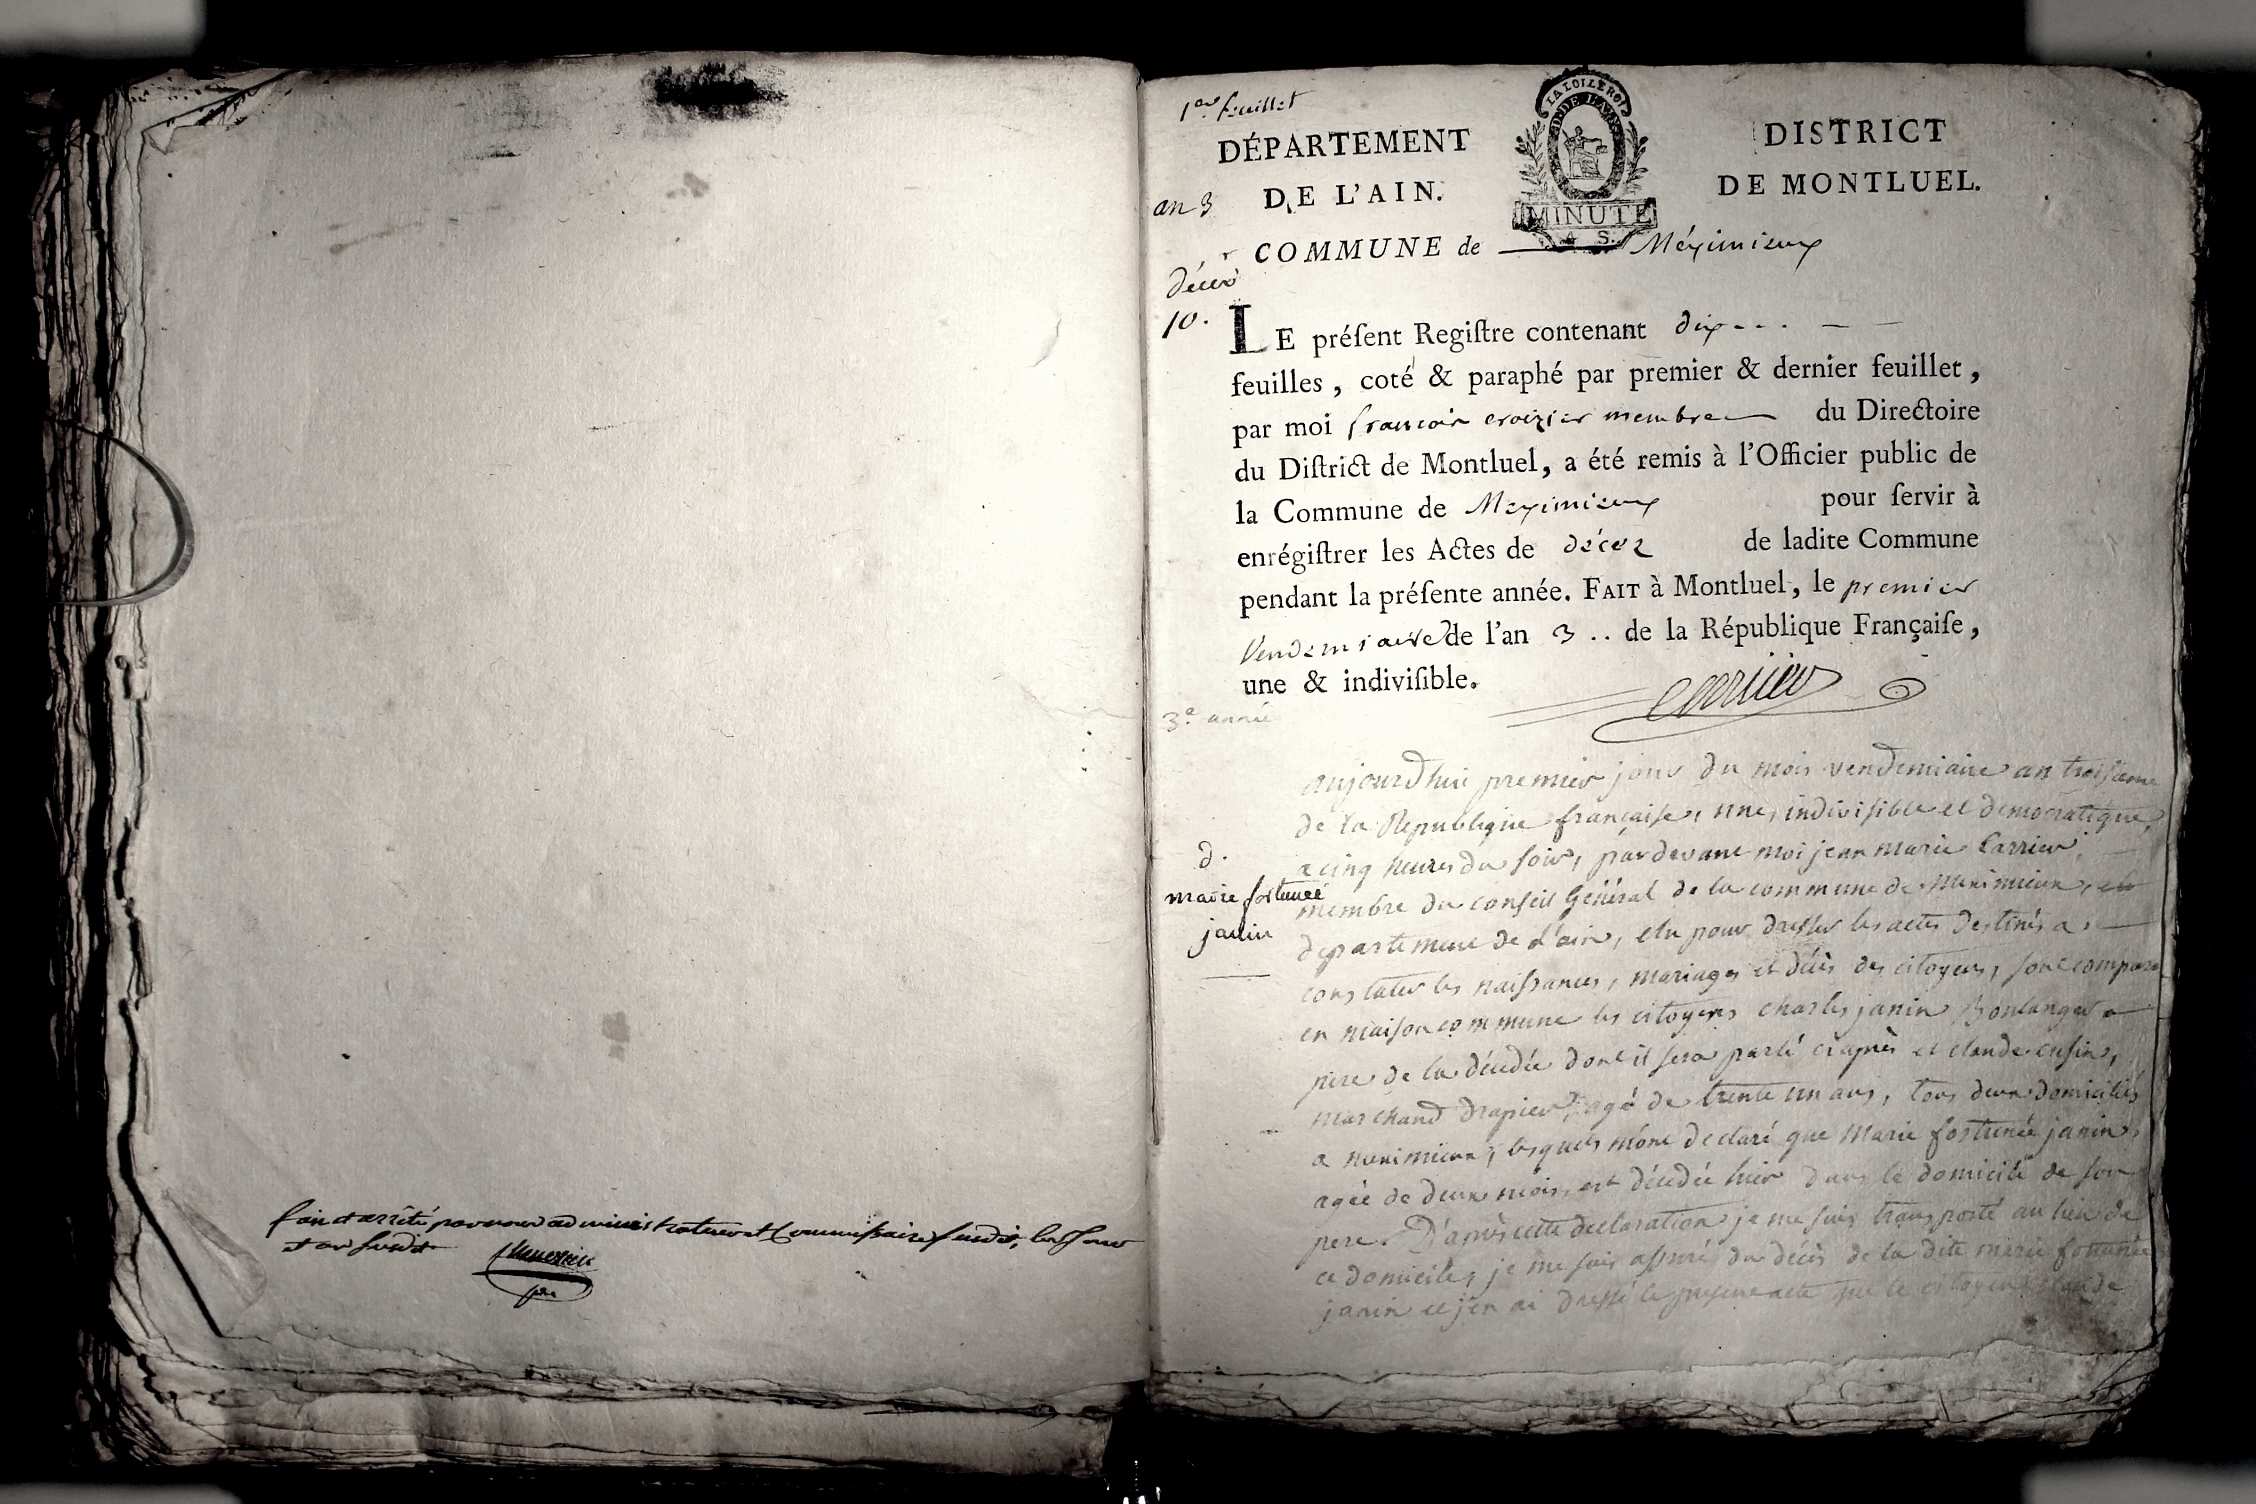 fait et arrêté par nous administrateur et Commissaire susdit, les jour
et an susdit
1er. feuillet
DÉPARTEMENT
DE L'AIN.
LA LOI LE ROI
MINUTE
DISTRICT
DE MONTLUEL.
an 3
COMMUNE de Méximieux
décès
10.
LE préſent Regiſtre contenant dix
feuilles, coté & paraphé par premier & dernier feuillet,
par moi françois croizier membre du Directoire
du Diſtrict de Montluel, a été remis à l'Officier public de
la Commune de Meximieux pour ſervir à
enrégiſtrer les Actes de décez de ladite Commune
pendant la préſente année. FAIT à Montluel, le premier
Vendemiaire de l'an 3 .. de la République Françaiſe,
une & indiviſible.
3.e année
d.
marie fortuneé
janin
aujourdhui premier jour du mois vendemiaire an troisieme
de la Republique française, une, indivisible et democratique,
a cinq heures du soir, pardevant moi jean marie Carrier,
membre du conseil Général de la commune de meximieux,
departement de l'ain, elu pour dresser les actes destinés a
constater les naissances, mariages et décès des citoyens, sont comparu
en maison commune les citoyens charles janin Boulanger
pere de la décédée dont il sera parlé ciaprès et claude cusin,
marchand drapier, agé de trente un ans, tous deux domiciliés
a meximieux, lesquels m'ont declaré que Marie fortunée janin,
agée de deux mois, est décédée hier dans le domicile de son
pere. D'après cette declaration je me suis transporté au lieu de
ce domicile, je me suis assuré du décès de la dite marie fortunée
janin et j'en ai dressé le present acte que le citoyen claude